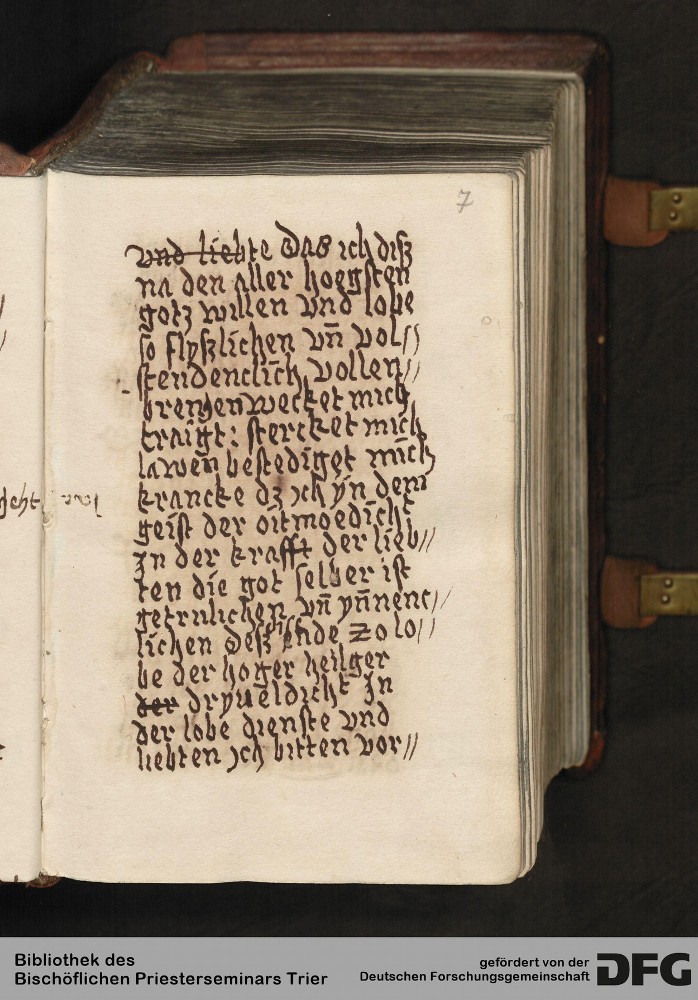 7
und liebte Das ich disz
na den aller hoegsten
gotz willen vnd lobe
so flyszlichen vn̄ vol//
stendenclich vollen//
brengen wecket mich
traigt: stercket mich
lawen bestediget mich
krancke dz ich yn dem
geist der oitmoedicht
In der krafft der lieb//
ten die got selber ist
getrulichen vn̄ yn̄nenc//
lichen desz ende zo lo//
be der hoger heilger
der dryueldicht In
der lobe dienste vnd
liebten ich bitten vor//
Bibliothek des
Bischöflichen Priesterseminars Trier
gefördert von der
Deutschen Forschungsgemeinschaft
DFG